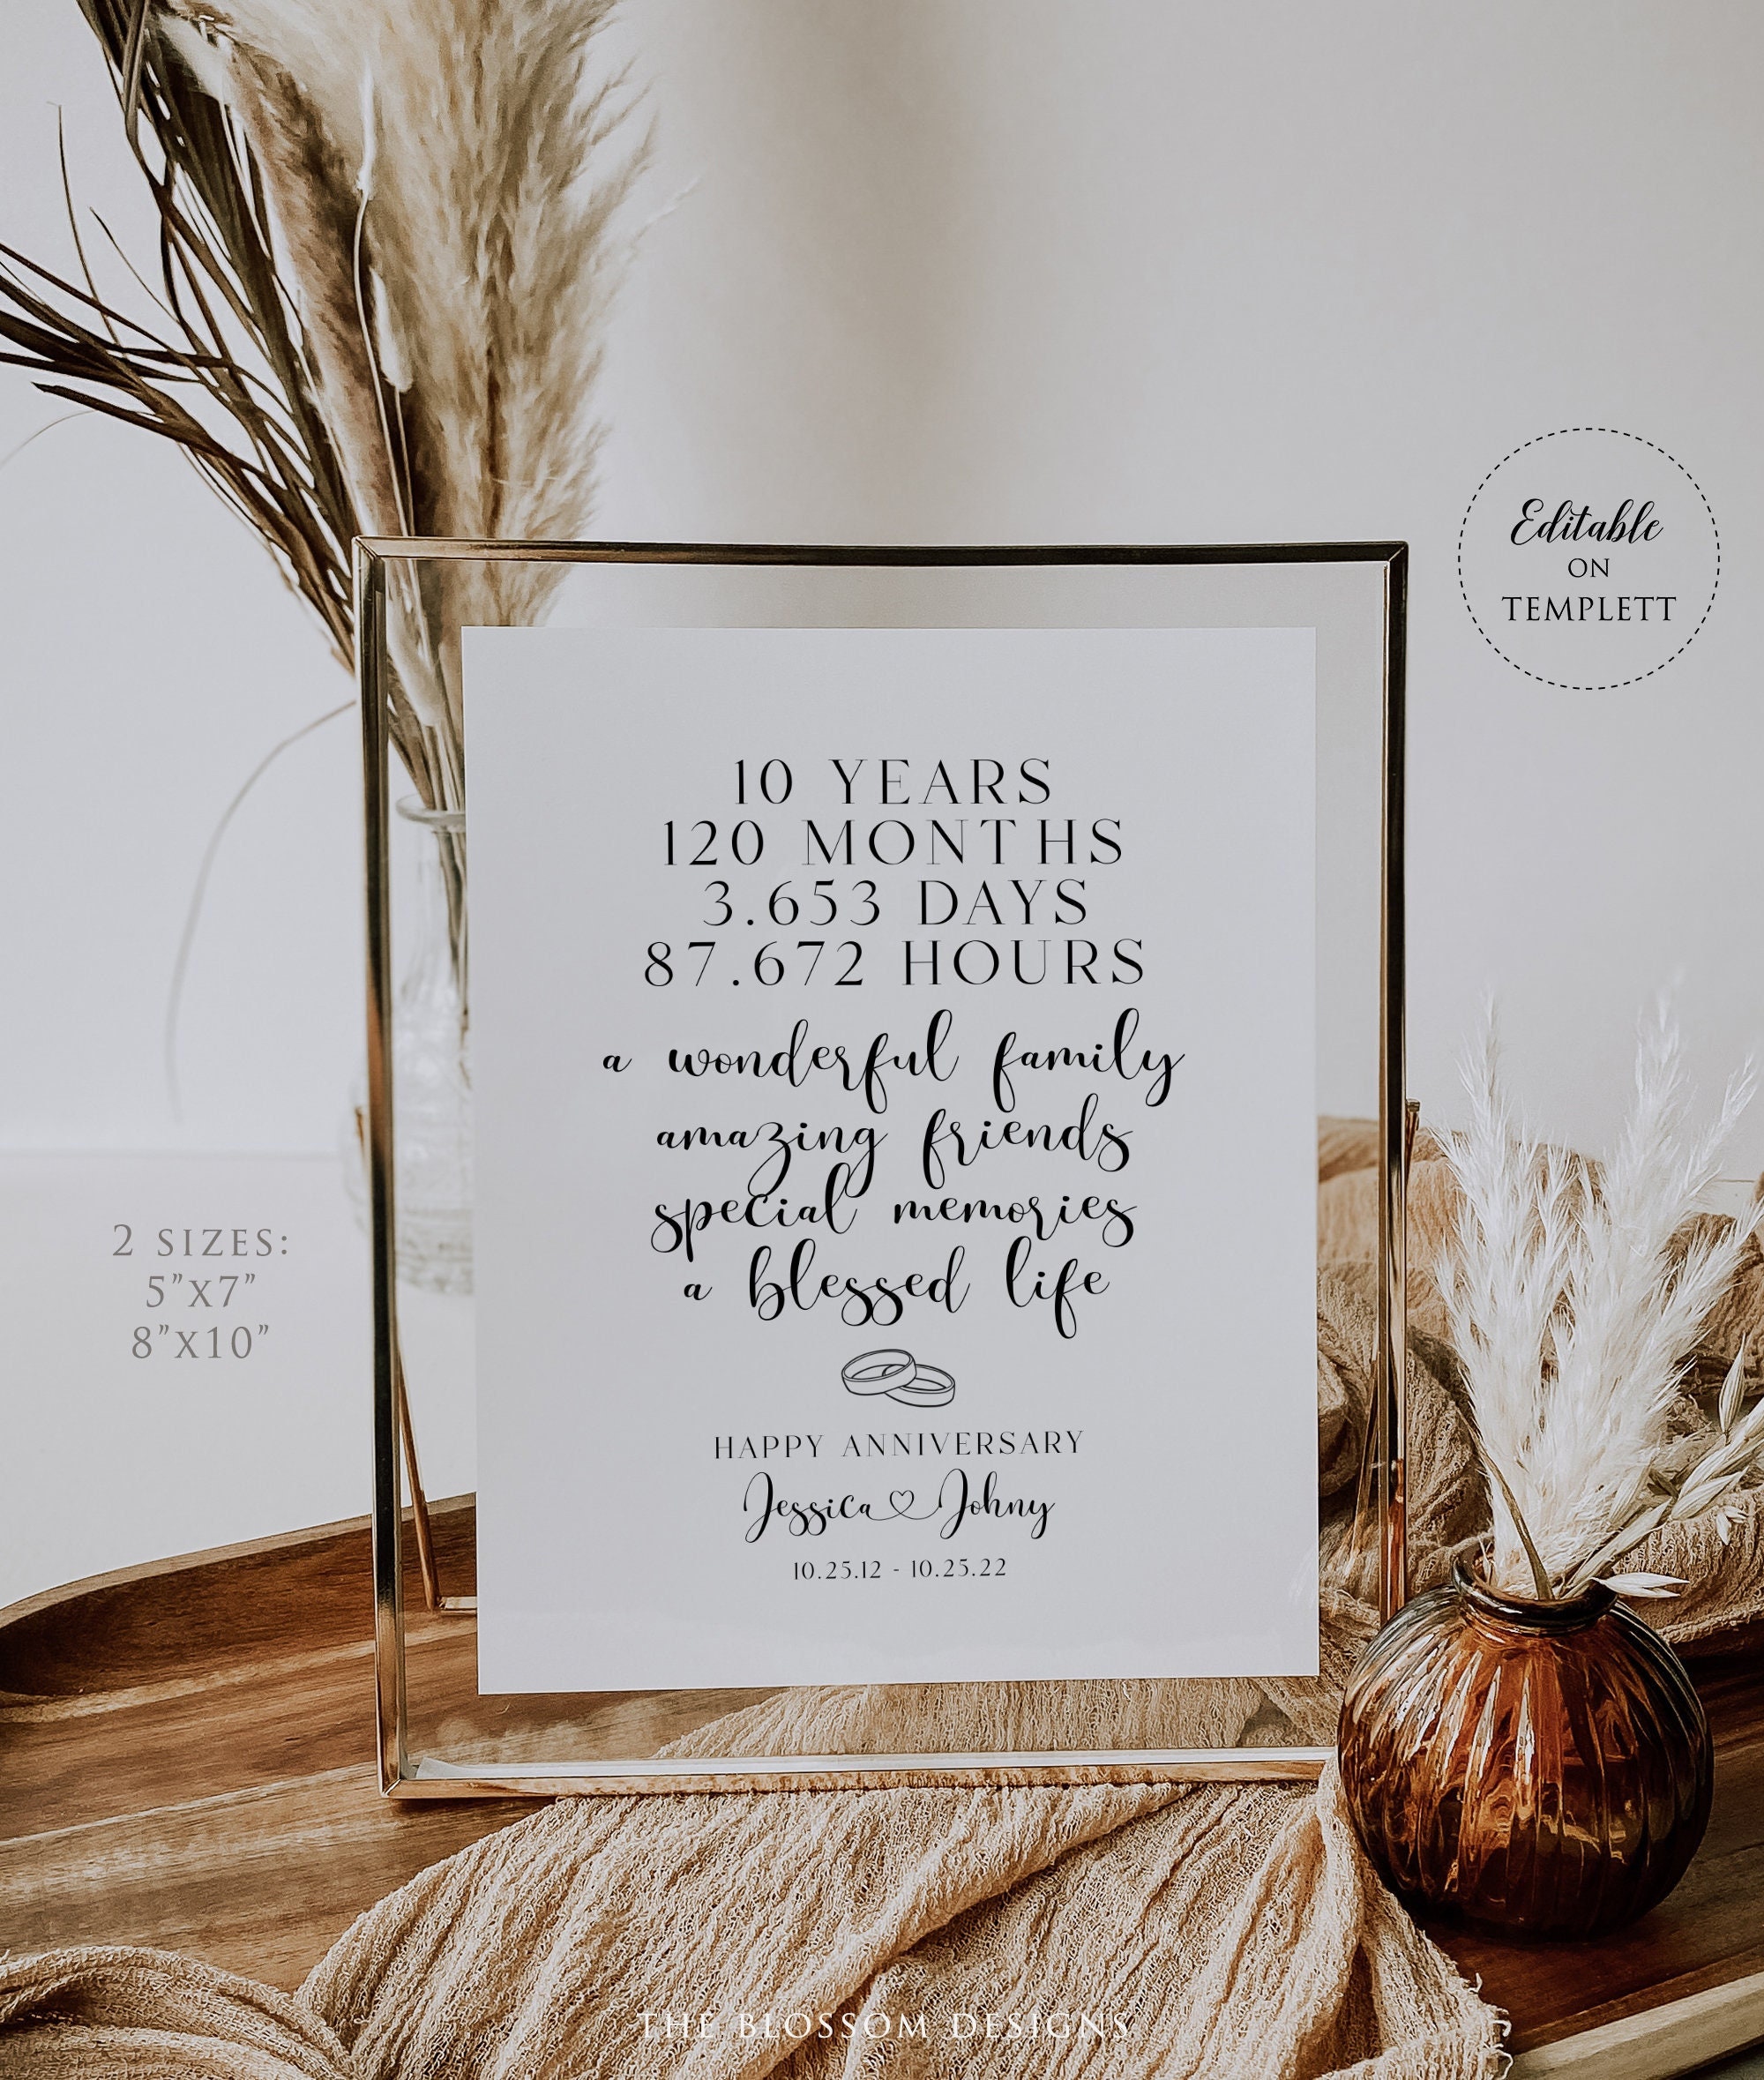 Editable
ON
TEMPLETT
10 YEARS
120 MONTHS
3.653 DAYS
87.672 HOURS
a wonderful family
amazing friends
special memories
a blessed life
HAPPY ANNIVERSARY
Jessica♡Johny
10.25.12 - 10.25.22
2 SIZES:
5”X7”
8”X10”
THE BLOSSOM DESIGNS